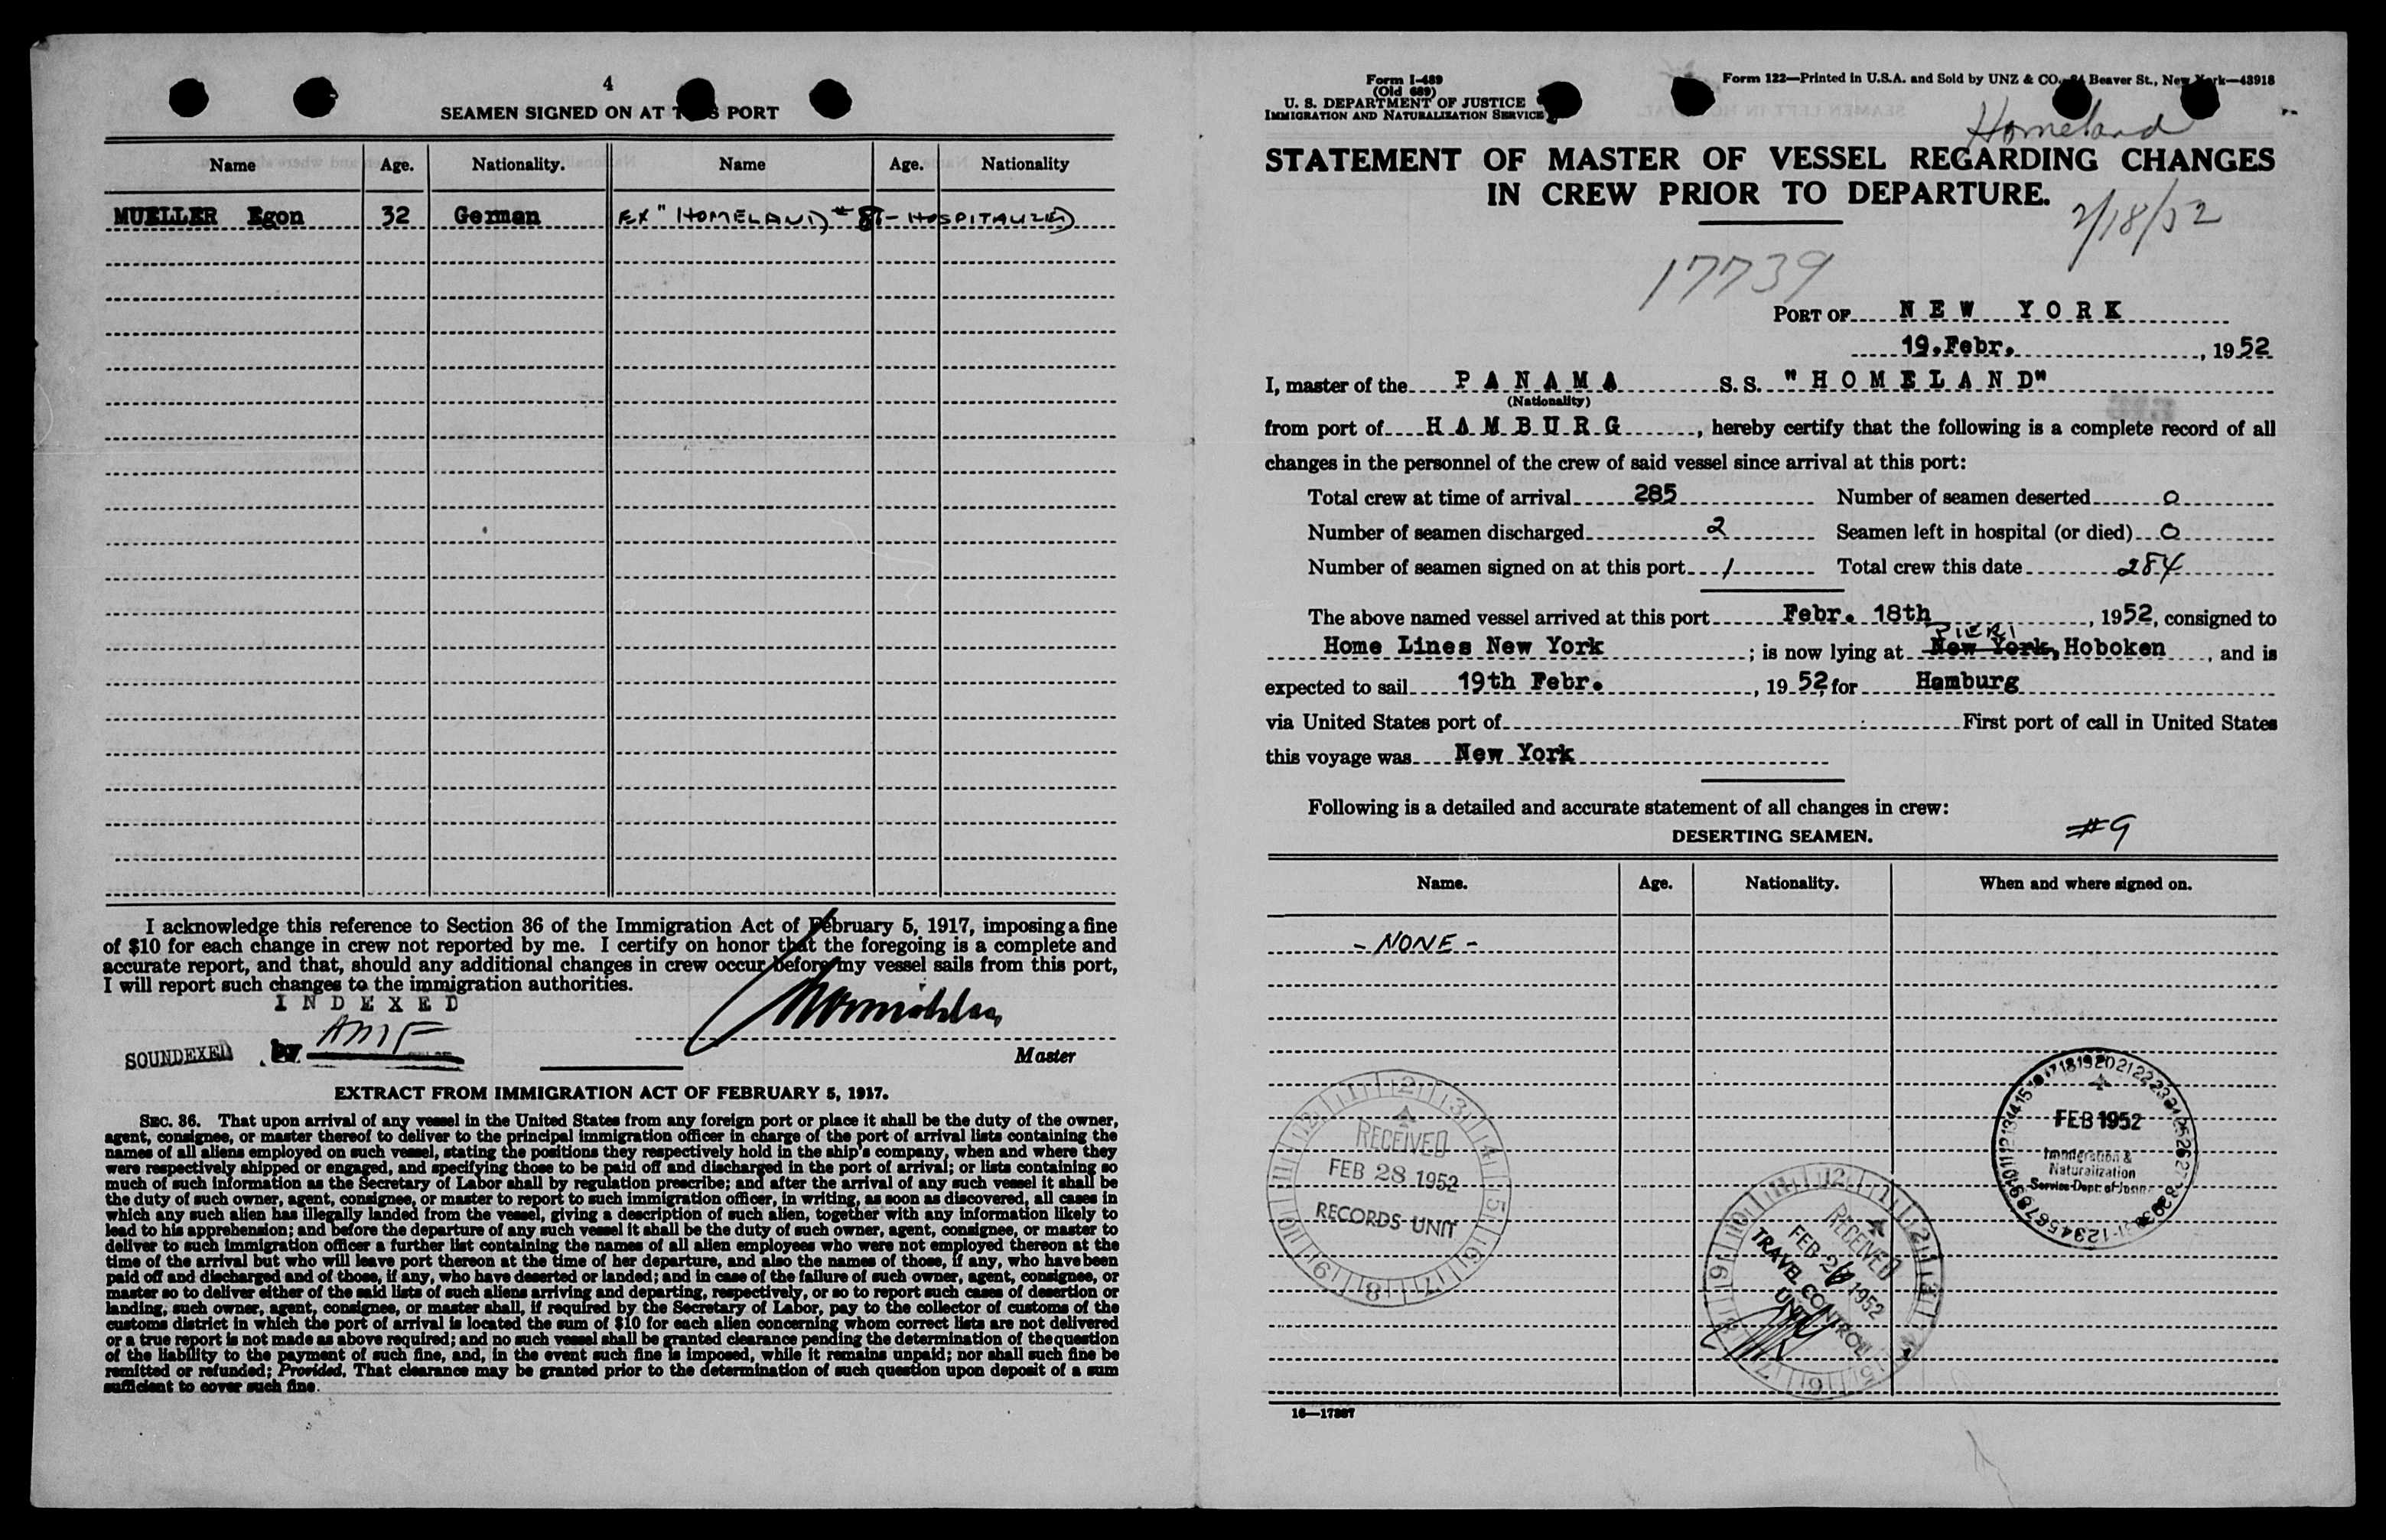 4
SEAMEN SIGNED ON AT PORT
Name Age. Nationality. Name Age. Nationality
MUELLER Egon 32 German EX "HOMELAND" # - HOSPITALIZED
I acknowledge this reference to Section 36 of the Immigration Act of February 5, 1917, imposing a fine
of $10 for each change in crew not reported by me. I certify on honor that the foregoing is a complete and
accurate report, and that, should any additional changes in crew occur before my vessel sails from this port,
I will report such changes to the immigration authorities.
INDEXED
SOUNDEXED by AMF
Master
EXTRACT FROM IMMIGRATION ACT OF FEBRUARY 5, 1917.
SEC. 36. That upon arrival of any vessel in the United States from any foreign port or place it shall be the duty of the owner,
agent, consignee, or master thereof to deliver to the principal immigration officer in charge of the port of arrival lists containing the
names of all aliens employed on such vessel, stating the positions they respectively hold in the ship's company, when and where they
were respectively shipped or engaged, and specifying those to be paid off and discharged in the port of arrival; or lists containing so
much of such information as the Secretary of Labor shall by regulation prescribe; and after the arrival of any such vessel it shall be
the duty of such owner, agent, consignee, or master to report to such immigration officer, in writing, as soon as discovered, all cases in
which any such alien has illegally landed from the vessel, giving a description of such alien, together with any information likely to
lead to his apprehension; and before the departure of any such vessel it shall be the duty of such owner, agent, consignee, or master to
deliver to such immigration officer a further list containing the names of all alien employees who were not employed thereon at the
time of the arrival but who will leave port thereon at the time of her departure, and also the names of those, if any, who have been
paid off and discharged and of those, if any, who have deserted or landed; and in case of the failure of such owner, agent, consignee, or
master so to deliver either of the said lists of such aliens arriving and departing, respectively, or so to report such cases of desertion or
landing, such owner, agent, consignee, or master shall, if required by the Secretary of Labor, pay to the collector of customs of the
customs district in which the port of arrival is located the sum of $10 for each alien concerning whom correct lists are not delivered
or a true report is not made as above required; and no such vessel shall be granted clearance pending the determination of the question
of the liability to the payment of such fine, and, in the event such fine is imposed, while it remains unpaid; nor shall such fine be
remitted or refunded; Provided, That clearance may be granted prior to the determination of such question upon deposit of a sum
sufficient to cover such fine.
Form I-489
(Old 689)
U. S. DEPARTMENT OF JUSTICE
IMMIGRATION AND NATURALIZATION SERVICE
Form 122—Printed in U.S.A. and Sold by UNZ & CO. Beaver St., New York—43918
Homeland
STATEMENT OF MASTER OF VESSEL REGARDING CHANGES
IN CREW PRIOR TO DEPARTURE.
2/18/52
17739
PORT OF NEW YORK
19.Febr., 1952
I, master of the PANAMA S.S. "HOMELAND"
(Nationality)
from port of HAMBURG, hereby certify that the following is a complete record of all
changes in the personnel of the crew of said vessel since arrival at this port:
Total crew at time of arrival 285 Number of seamen deserted 0
Number of seamen discharged 2 Seamen left in hospital (or died) 0
Number of seamen signed on at this port 1 Total crew this date 284
The above named vessel arrived at this port Febr. 18th, 1952, consigned to
PIER 1
Home Lines New York; is now lying at New York, Hoboken, and is
expected to sail 19th Febr., 1952, for Hamburg
via United States port of First port of call in United States
this voyage was New York
Following is a detailed and accurate statement of all changes in crew:
DESERTING SEAMEN. #9
Name. Age. Nationality. When and where signed on.
- NONE -
RECEIVED
FEB 28 1952
RECORDS UNIT
RECEIVED
FEB 1952
TRAVEL CONTROL
UNIT
FEB 1952
Immigration &
Naturalization
Service-Dept. of Justice
16—17387